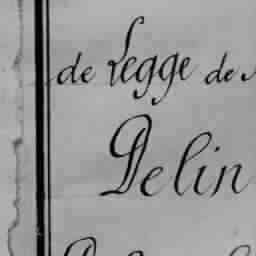 de Legge de
Delin